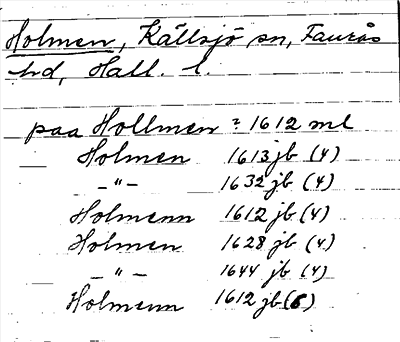 Holmen, Källsjö sn, Faurås
hd, Hall. l.
paa Hollmen ? 1612 ml
Holmen 1613 jb (4)
— " — 1632 jb (4)
Holmenn 1612 jb (4)
Holmen 1628 jb (4)
— " — 1644 jb (4)
Holmenn 1612 jb (6)